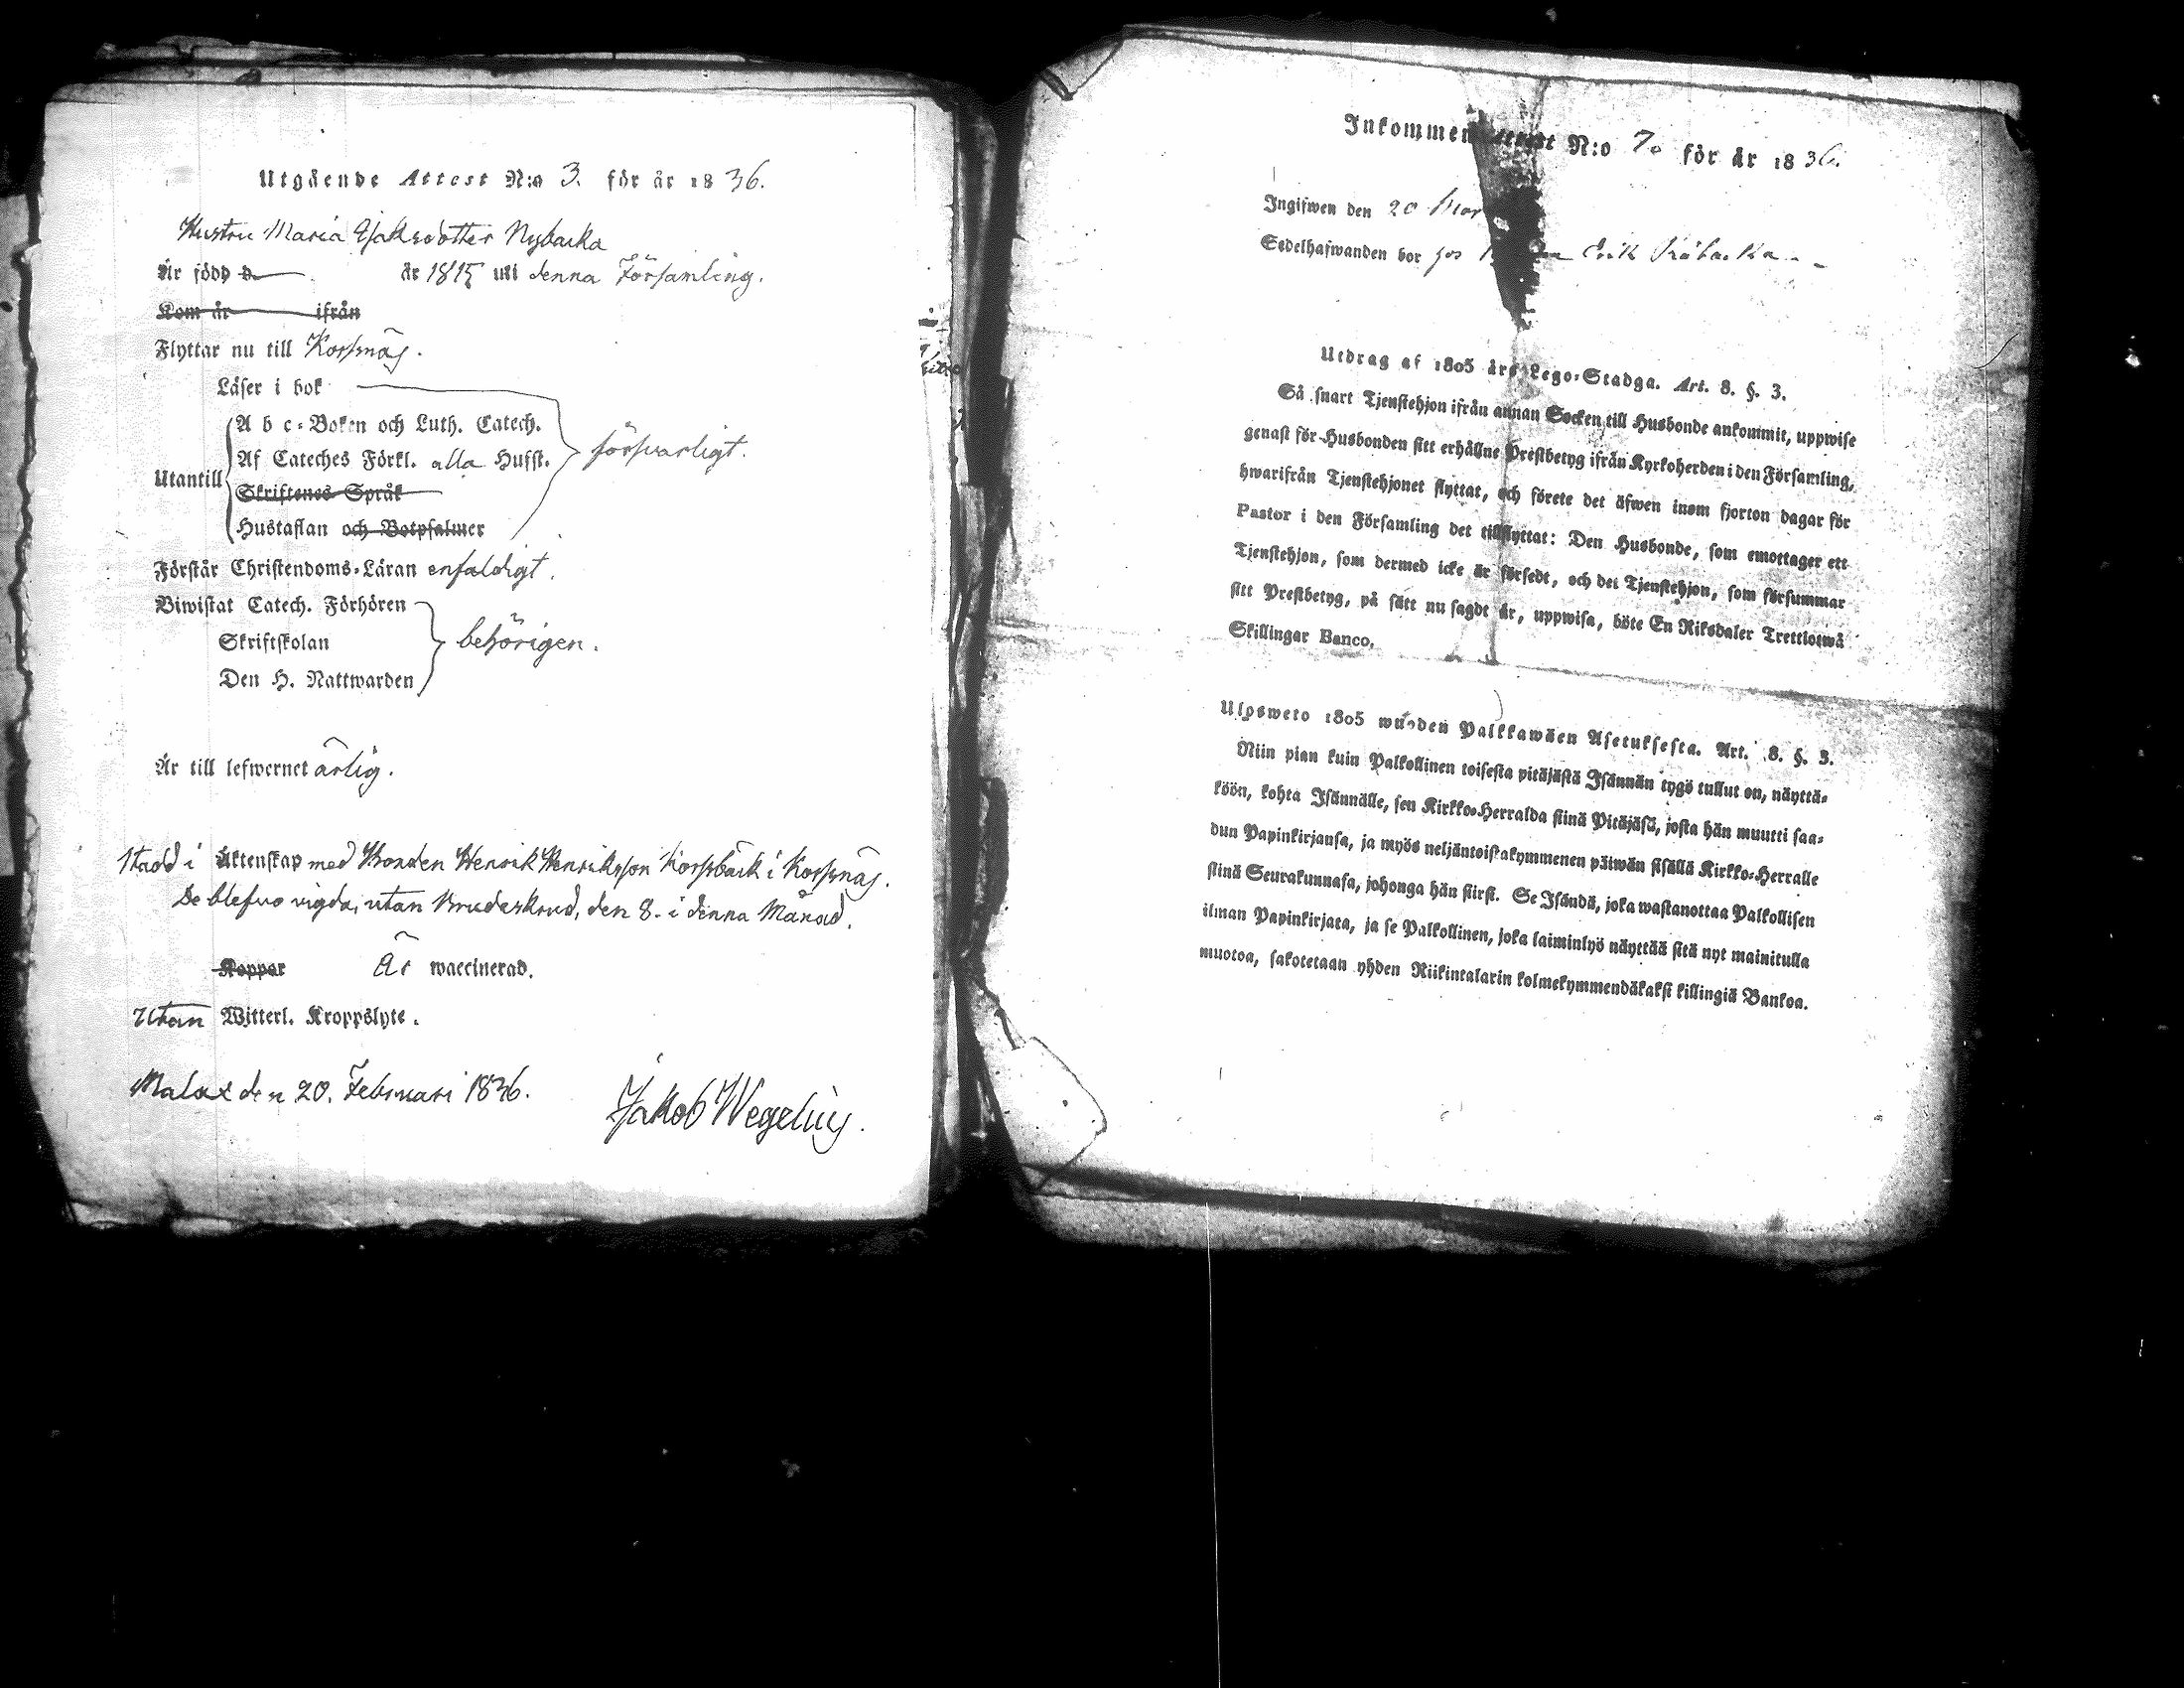 Utgående Attest N:o 3. för år 1836.
Hustru Maria Isaksdotter Nybacka
Är född d. år 1815 uti denna Församling.
Kom år ifrån
Flyttar nu till Korsnäs.
Läser i bok
A b c-Boken och Luth. Catech.
Af Cateches Förkl. alla Husst. försvarligt.
Utantill
Skriftenes Språk
Hustaflan och Botpsalmer
Förstår Christendoms-Läran enfaldigt.
Biwistat Catech. Förhören
Skriftskolan behörigen.
Den H. Nattwarden
Är till lefwernet ärlig.
Stadd i Äktenskap med Bonden Henrik Henriksson Korsbäck i Korsnäs.
De blefvo vigda, utan Brudeskrud, den 8. i denna Månad.
Koppor Är waccinerad.
Utan Witterl. Kroppslyte.
Malax den 20. Februari 1836.
Jakob Wegelius.
Inkommen Attest N:o 7. för år 1836.
Ingifwen den 20 Mar
Sedelhafwanden bor hos Erik
Utdrag af 1805 års Lego-Stadga. Art. 8. §. 3.
Så snart Tjenstehjon ifrån annan Socken till Husbonde ankommit, uppwise
genast för Husbonden sitt erhållne Prestbetyg ifrån Kyrkoherden i den Församling,
hwarifrån Tjenstehjonet flyttat, och förete det äfwen inom fjorton dagar för
Pastor i den Församling det tillflyttat: Den Husbonde, som emottager ett
Tjenstehjon, som dermed icke är försedt, och det Tjenstehjon, som försummar
sitt Prestbetyg, på sätt nu sagdt är, uppwisa, böte En Riksdaler Trettiotwå
Skillingar Banco.
Ulosweto 1805 wuoden Palkkawäen Asetuksesta. Art. 8. §. 3.
Niin pian kuin Palkollinen toisesta pitäjästä Isännän tygö tullut on, näyttä-
köön, kohta Isännälle, sen Kirkko-Herralda siinä Pitäjäsä, josta hän muutti saa-
dun Papinkirjansa, ja myös neljäntoistakymmenen päiwän sisällä Kirkko-Herralle
siinä Seurakunnasa, johonga hän siirsi. Se Isändä, joka wastanottaa Palkollisen
ilman Papinkirjata, ja se Palkollinen, joka laiminlyö näyttää sitä nyt mainitulla
muotoa, sakotetaan yhden Riikintalarin kolmekymmendäkaksi killingiä Bankoa.